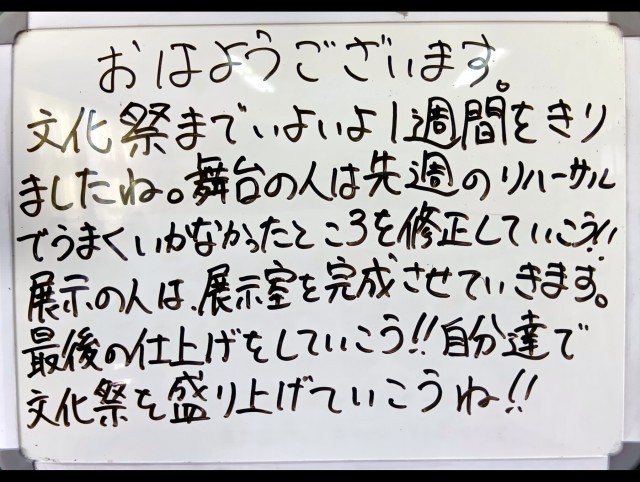 おはようございます。
文化祭までいよいよ1週間をきり
ましたね。舞台の人は先週のリハーサル
でうまくいかなかったところを修正していこう!!
展示の人は、展示室を完成させていきます。
最後の仕上げをしていこう!!自分達で
文化祭を盛り上げていこうね!!